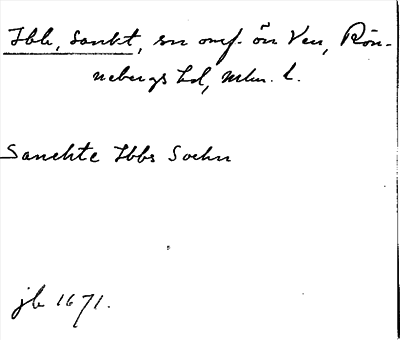 Ibb, Sankt, sn omf. ön Ven, Rön-
nebergs hd, Mlm. l.
Sanckte Ibbs Sochn
jb 1671.